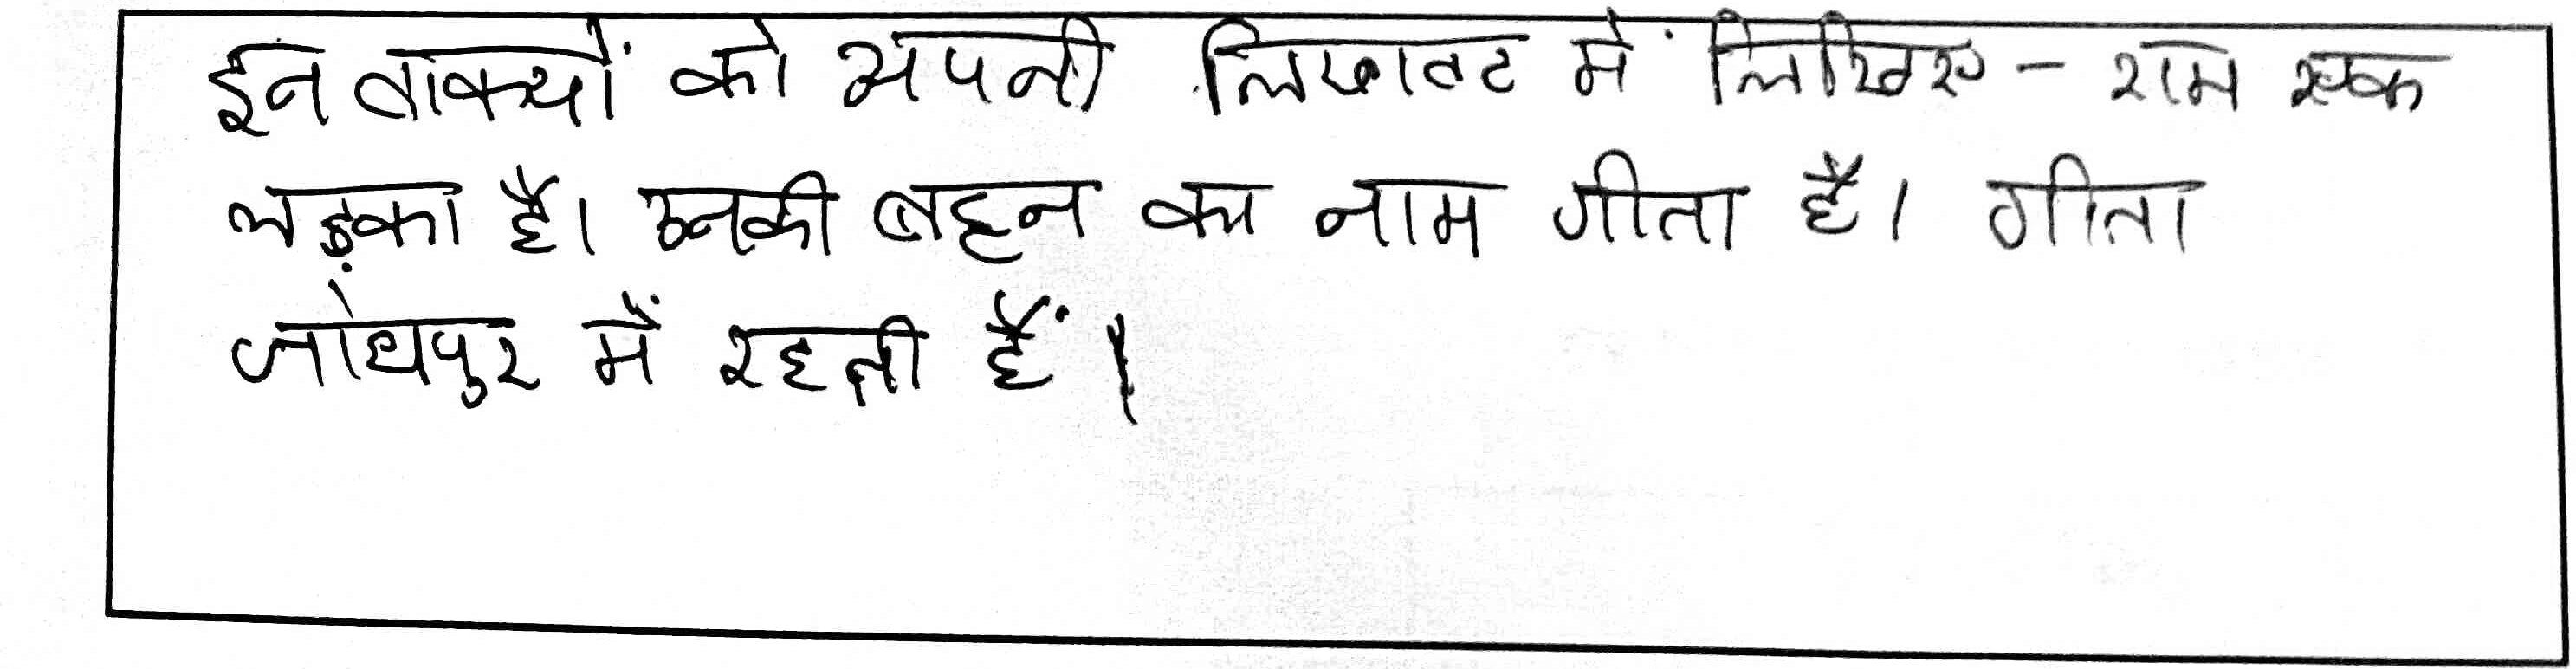 इन वाक्यों को अपनी लिखावट में लिखिए - राम एक
लड़का है। उनकी बहन का नाम गीता है। गीता
जोधपुर में रहती हैं।